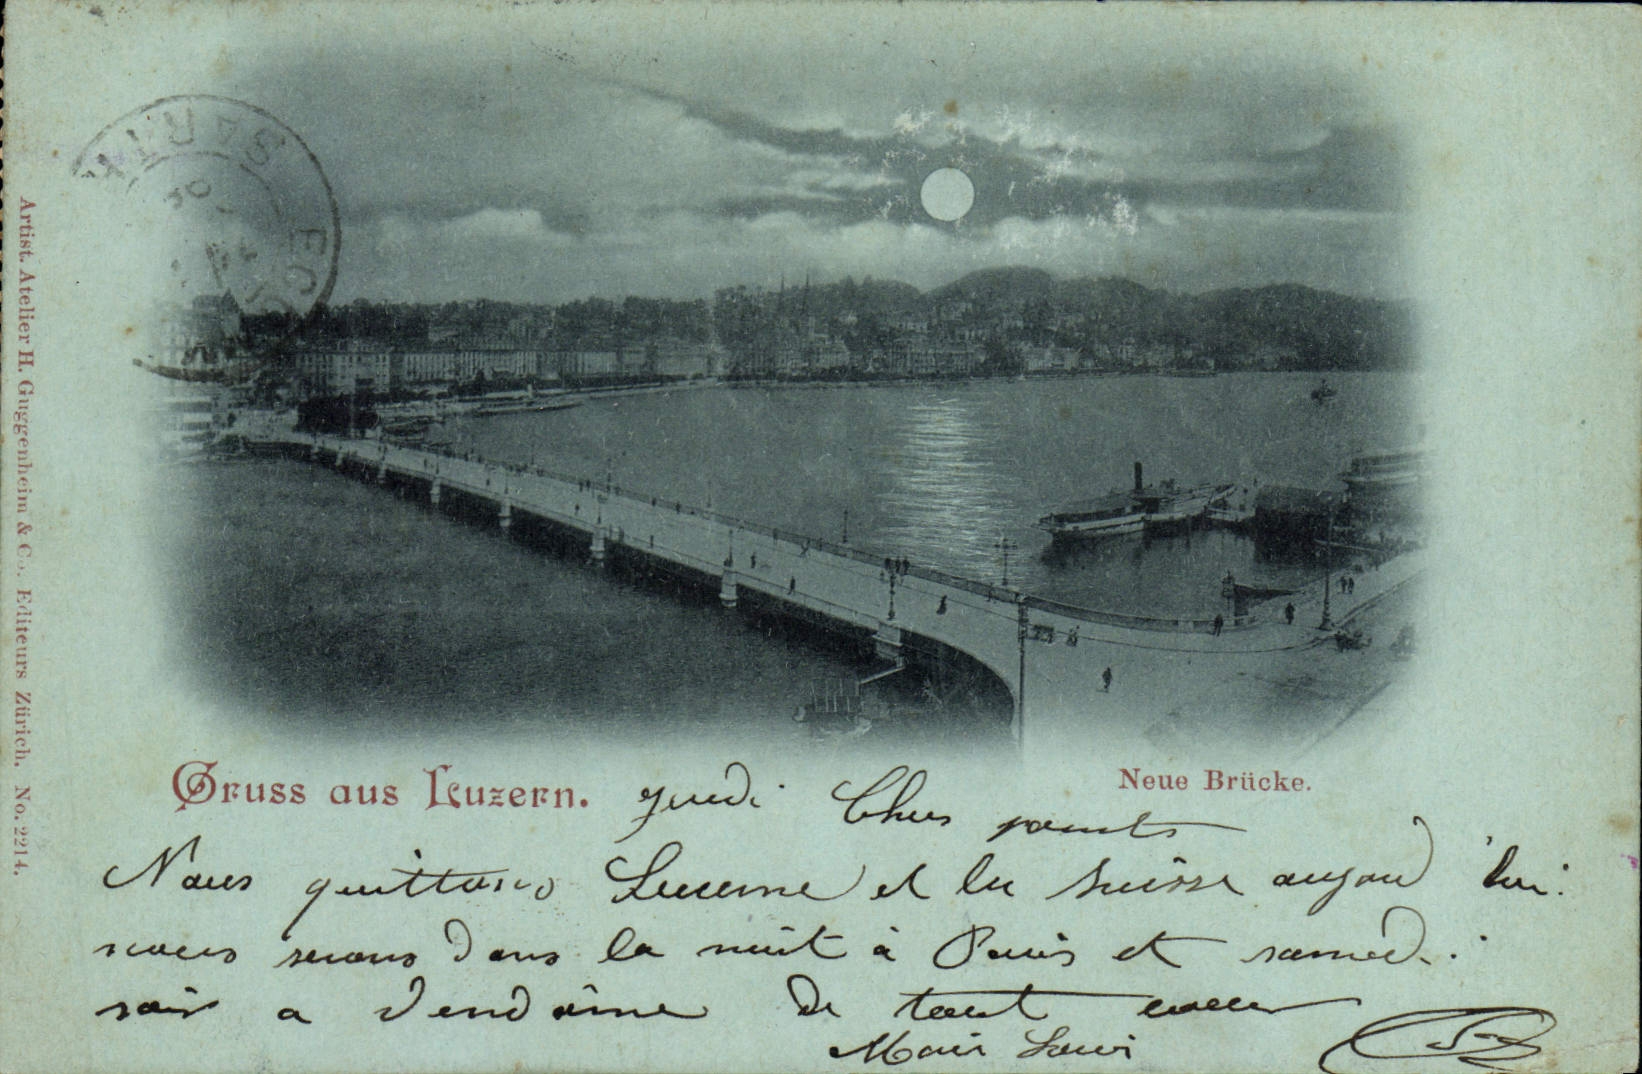 Artist. Atelier H. Guggenheim & Co. Editeurs Zürich. No. 2214.
SARTH
ECO
Gruss aus Luzern.
Neue Brücke.
jeudi Chers parents
Nous quittons Lucerne et la Suisse aujourd'hui.
nous serons dans la nuit à Paris et samedi
soir a Vendôme de tout coeur
Marie Louis